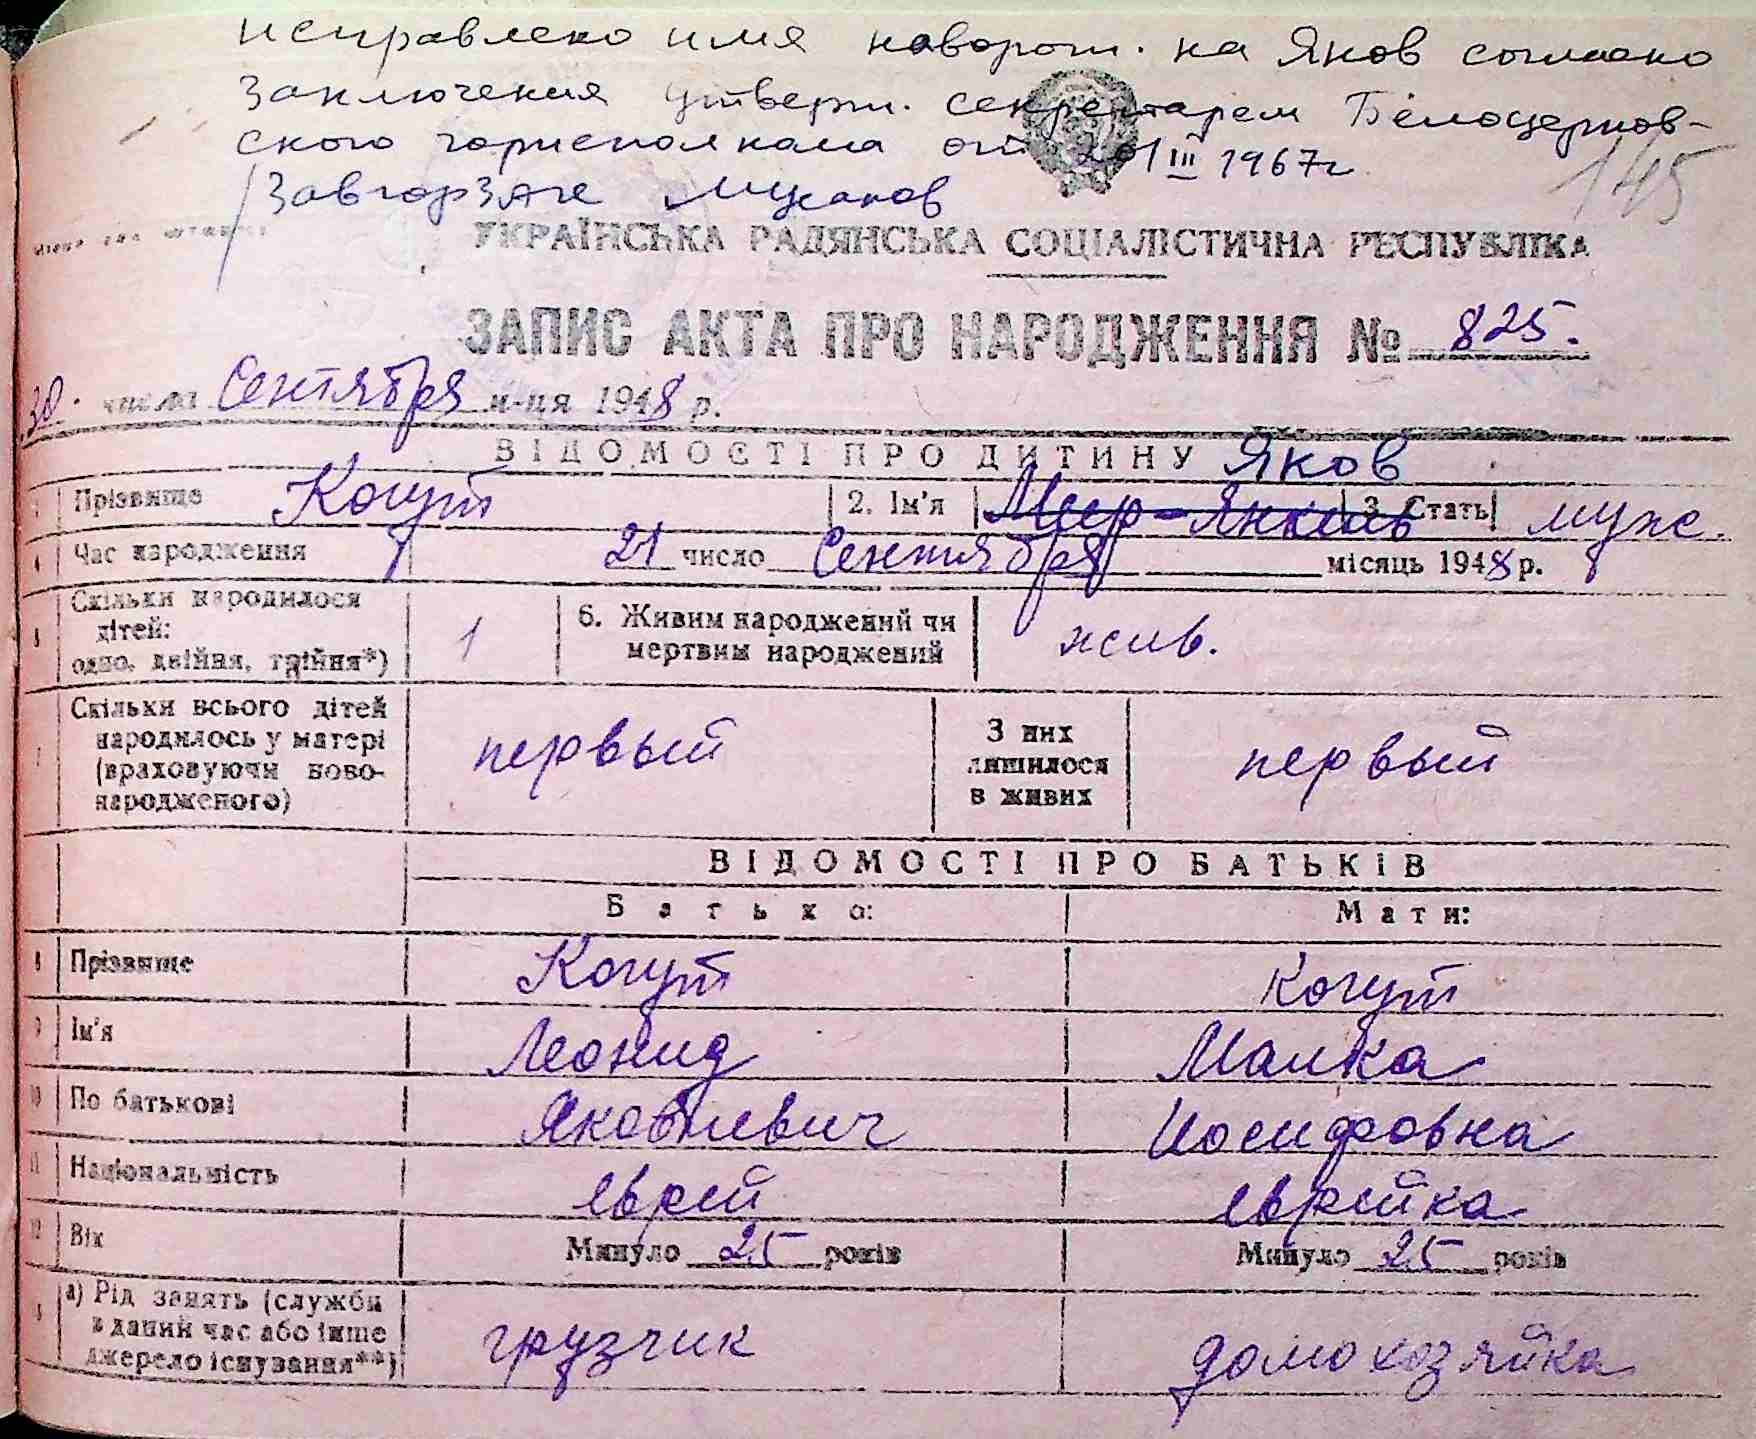 исправлено имя новорот. на Яков согласно
Заключения утверт. секретарем Белоцерков-
ского горисполкома от 20/III 1967г
145
/ЗавгорЗАГС
УКРАЇНСЬКА РАДЯНСЬКА СОЦІАЛІСТИЧНА РЕСПУБЛІКА
ЗАПИС АКТА ПРО НАРОДЖЕННЯ № 825.
30. числа Сентября м-ця 1948 р.
ВІДОМОСТІ ПРО ДИТИНУ Яков
Прізвище Когут 2. Ім'я Меер-Янкель 3. Стать муж.
4 Час народження 21 число Сентября місяць 1948 р.
5 Скільки народилося
дітей:
одно, двійня, трійня*) 1 6. Живим народжений чи
мертвим народжений жив.
7 Скільки всього дітей
народилось у матері
(враховуючи ново-
народженого) первый З них
лишилося
в живих первый
ВІДОМОСТІ ПРО БАТЬКІВ
Батько: Мати:
8 Прізвище Когут Когут
9 Ім'я Леонид Малка
10 По батькові Яковлевич Иосифовна
11 Національність еврей еврейка
12 Вік Минуло 25 років Минуло 25 років
а) Рід занять (служби
в даний час або інше
джерело існування**) грузчик домохозяйка